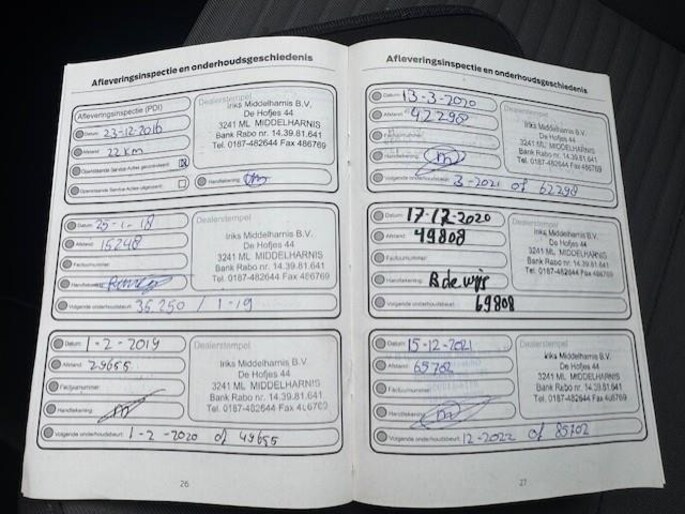 Afleveringsinspectie en onderhoudsgeschiedenis
Afleveringsinspectie (PDI)
Datum: 23-12-2016
Afstand: 22 km
Openstaande Service Acties gecontroleerd:
Openstaande Service Acties uitgevoerd:
Dealerstempel
Iriks Middelharnis B.V.
De Hofjes 44
3241 ML MIDDELHARNIS
Bank Rabo nr. 14.39.81.641
Tel. 0187-482644 Fax 486769
Handtekening:
Datum: 25-1-18
Afstand: 15248
Factuurnummer:
Handtekening:
Volgende onderhoudsbeurt: 35.250 / 1-19
Dealerstempel
Iriks Middelharnis B.V.
De Hofjes 44
3241 ML MIDDELHARNIS
Bank Rabo nr. 14.39.81.641
Tel. 0187-482644 Fax 486769
Datum: 1-2-2019
Afstand: 29655
Factuurnummer:
Handtekening:
Volgende onderhoudsbeurt: 1-2-2020 of 49655
Dealerstempel
Iriks Middelharnis B.V.
De Hofjes 44
3241 ML MIDDELHARNIS
Bank Rabo nr. 14.39.81.641
Tel. 0187-482644 Fax 486769
26
Afleveringsinspectie en onderhoudsgeschiedenis
Datum: 13-3-2020
Afstand: 42298
Factuurnummer:
Handtekening:
Volgende onderhoudsbeurt: 3-2021 of 62298
Dealerstempel
Iriks Middelharnis B.V.
De Hofjes 44
3241 ML MIDDELHARNIS
Bank Rabo nr. 14.39.81.641
Tel. 0187-482644 Fax 486769
Datum: 17-12-2020
Afstand: 49808
Factuurnummer:
Handtekening: B de Wijs
Volgende onderhoudsbeurt: 69808
Dealerstempel
Iriks Middelharnis B.V.
De Hofjes 44
3241 ML MIDDELHARNIS
Bank Rabo nr. 14.39.81.641
Tel. 0187-482644 Fax 486769
Datum: 15-12-2021
Afstand: 65702
Factuurnummer:
Handtekening:
Volgende onderhoudsbeurt: 12-2022 of 85702
Dealerstempel
Iriks Middelharnis B.V.
De Hofjes 44
3241 ML MIDDELHARNIS
Bank Rabo nr. 14.39.81.641
Tel. 0187-482644 Fax 486769
27